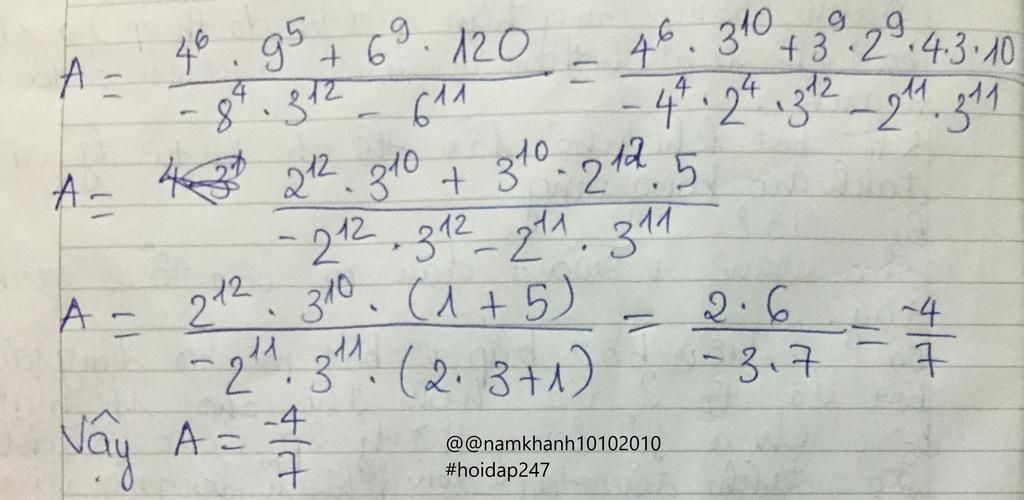 A = \frac{4^6 \cdot 9^5 + 6^9 \cdot 120}{-8^4 \cdot 3^{12} - 6^{11}} = \frac{4^6 \cdot 3^{10} + 3^9 \cdot 2^9 \cdot 4 \cdot 3 \cdot 10}{-4^4 \cdot 2^4 \cdot 3^{12} - 2^{11} \cdot 3^{11}}
A = \frac{2^{12} \cdot 3^{10} + 3^{10} \cdot 2^{12} \cdot 5}{-2^{12} \cdot 3^{12} - 2^{11} \cdot 3^{11}}
A = \frac{2^{12} \cdot 3^{10} \cdot (1 + 5)}{-2^{11} \cdot 3^{11} \cdot (2 \cdot 3 + 1)} = \frac{2 \cdot 6}{-3 \cdot 7} = \frac{-4}{7}
Vậy A = \frac{-4}{7}
@@namkhanh10102010
#hoidap247